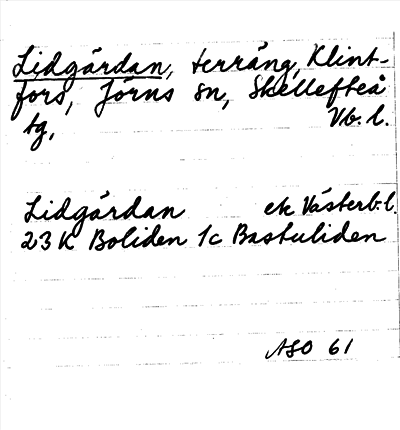 Lidgärdan, terräng, Klint-
fors, Jörns sn, Skellefteå
tg, Vb. l.
Lidgärdan ek Västerb. l.
23K Boliden 1c Bastuliden
ASO 61